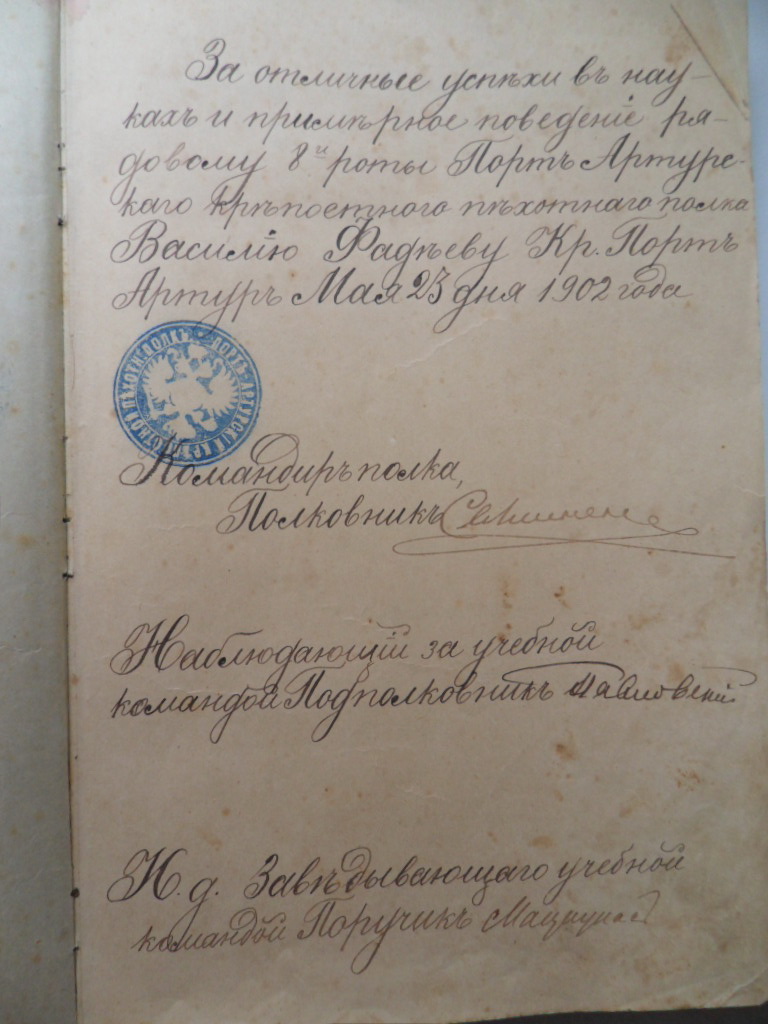 За отличные успѣхи въ нау-
кахъ и примѣрное поведеніе ря-
довому 8й роты Портъ Артурс-
каго крѣпостного пѣхотнаго полка
Василію Фадѣеву Кр. Портъ
Артуръ Мая 23 дня 1902 года
ПОРТЪ-АРТУРСКІЙ КРѢПОСТНОЙ ПѢХОТН. ПОЛКЪ
Командиръ полка,
Полковникъ
Наблюдающій за учебной
командой Подполковникъ Павловскій
И. д. Завѣдывающаго учебной
командой Поручикъ